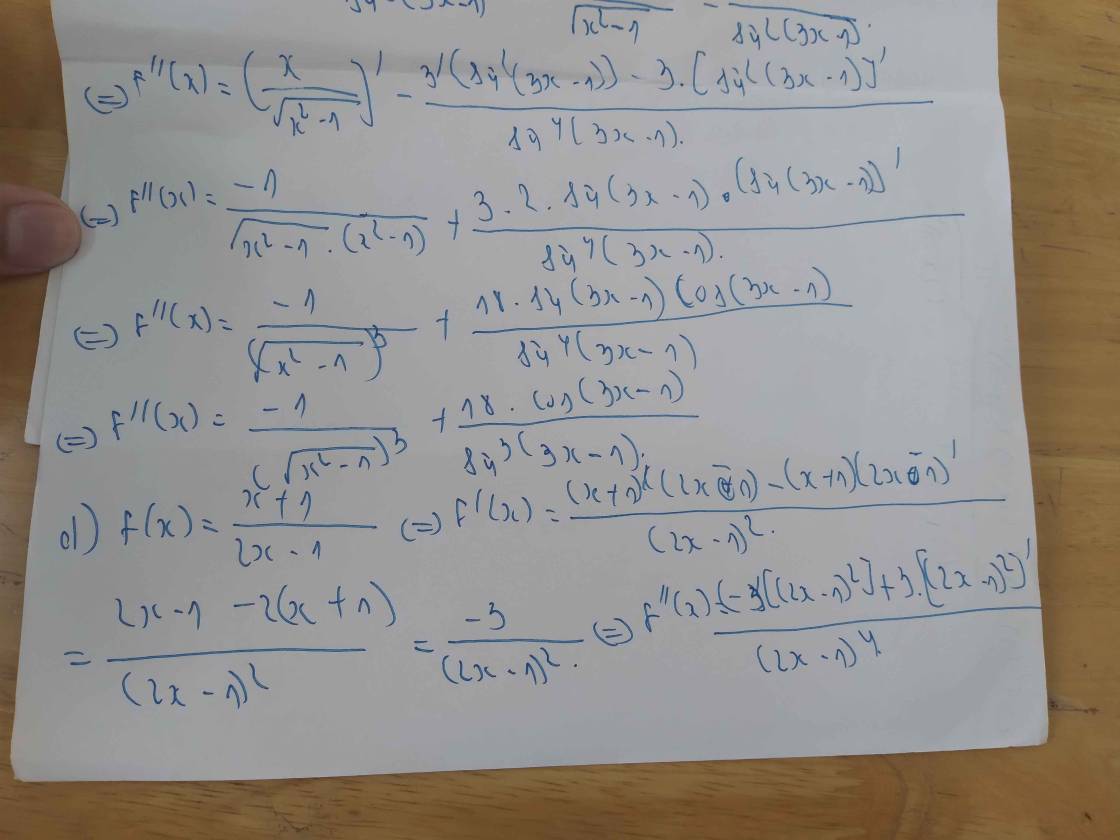 √(x²-1) - sin²(3x-1).
(=) f''(x) = (x/√(x²-1))' - (3'(sin²(3x-1)) - 3.[sin²(3x-1)]')/(sin⁴(3x-1)).
(=) f''(x) = -1/(√(x²-1).(x²-1)) + (3.2.sin(3x-1).(sin(3x-1))')/(sin⁴(3x-1)).
(=) f''(x) = -1/(√(x²-1))³ + (18.sin(3x-1)cos(3x-1))/(sin⁴(3x-1))
(=) f''(x) = -1/(√(x²-1))³ + (18.cos(3x-1))/(sin³(3x-1)).
d) f(x) = (x+1)/(2x-1) (=) f'(x) = ((x+1)'(2x-1)-(x+1)(2x-1)')/(2x-1)².
= (2x-1-2(x+1))/(2x-1)² = -3/(2x-1)². (=) f''(x) = ((-3)'[(2x-1)²]+3.[(2x-1)²]')/(2x-1)⁴